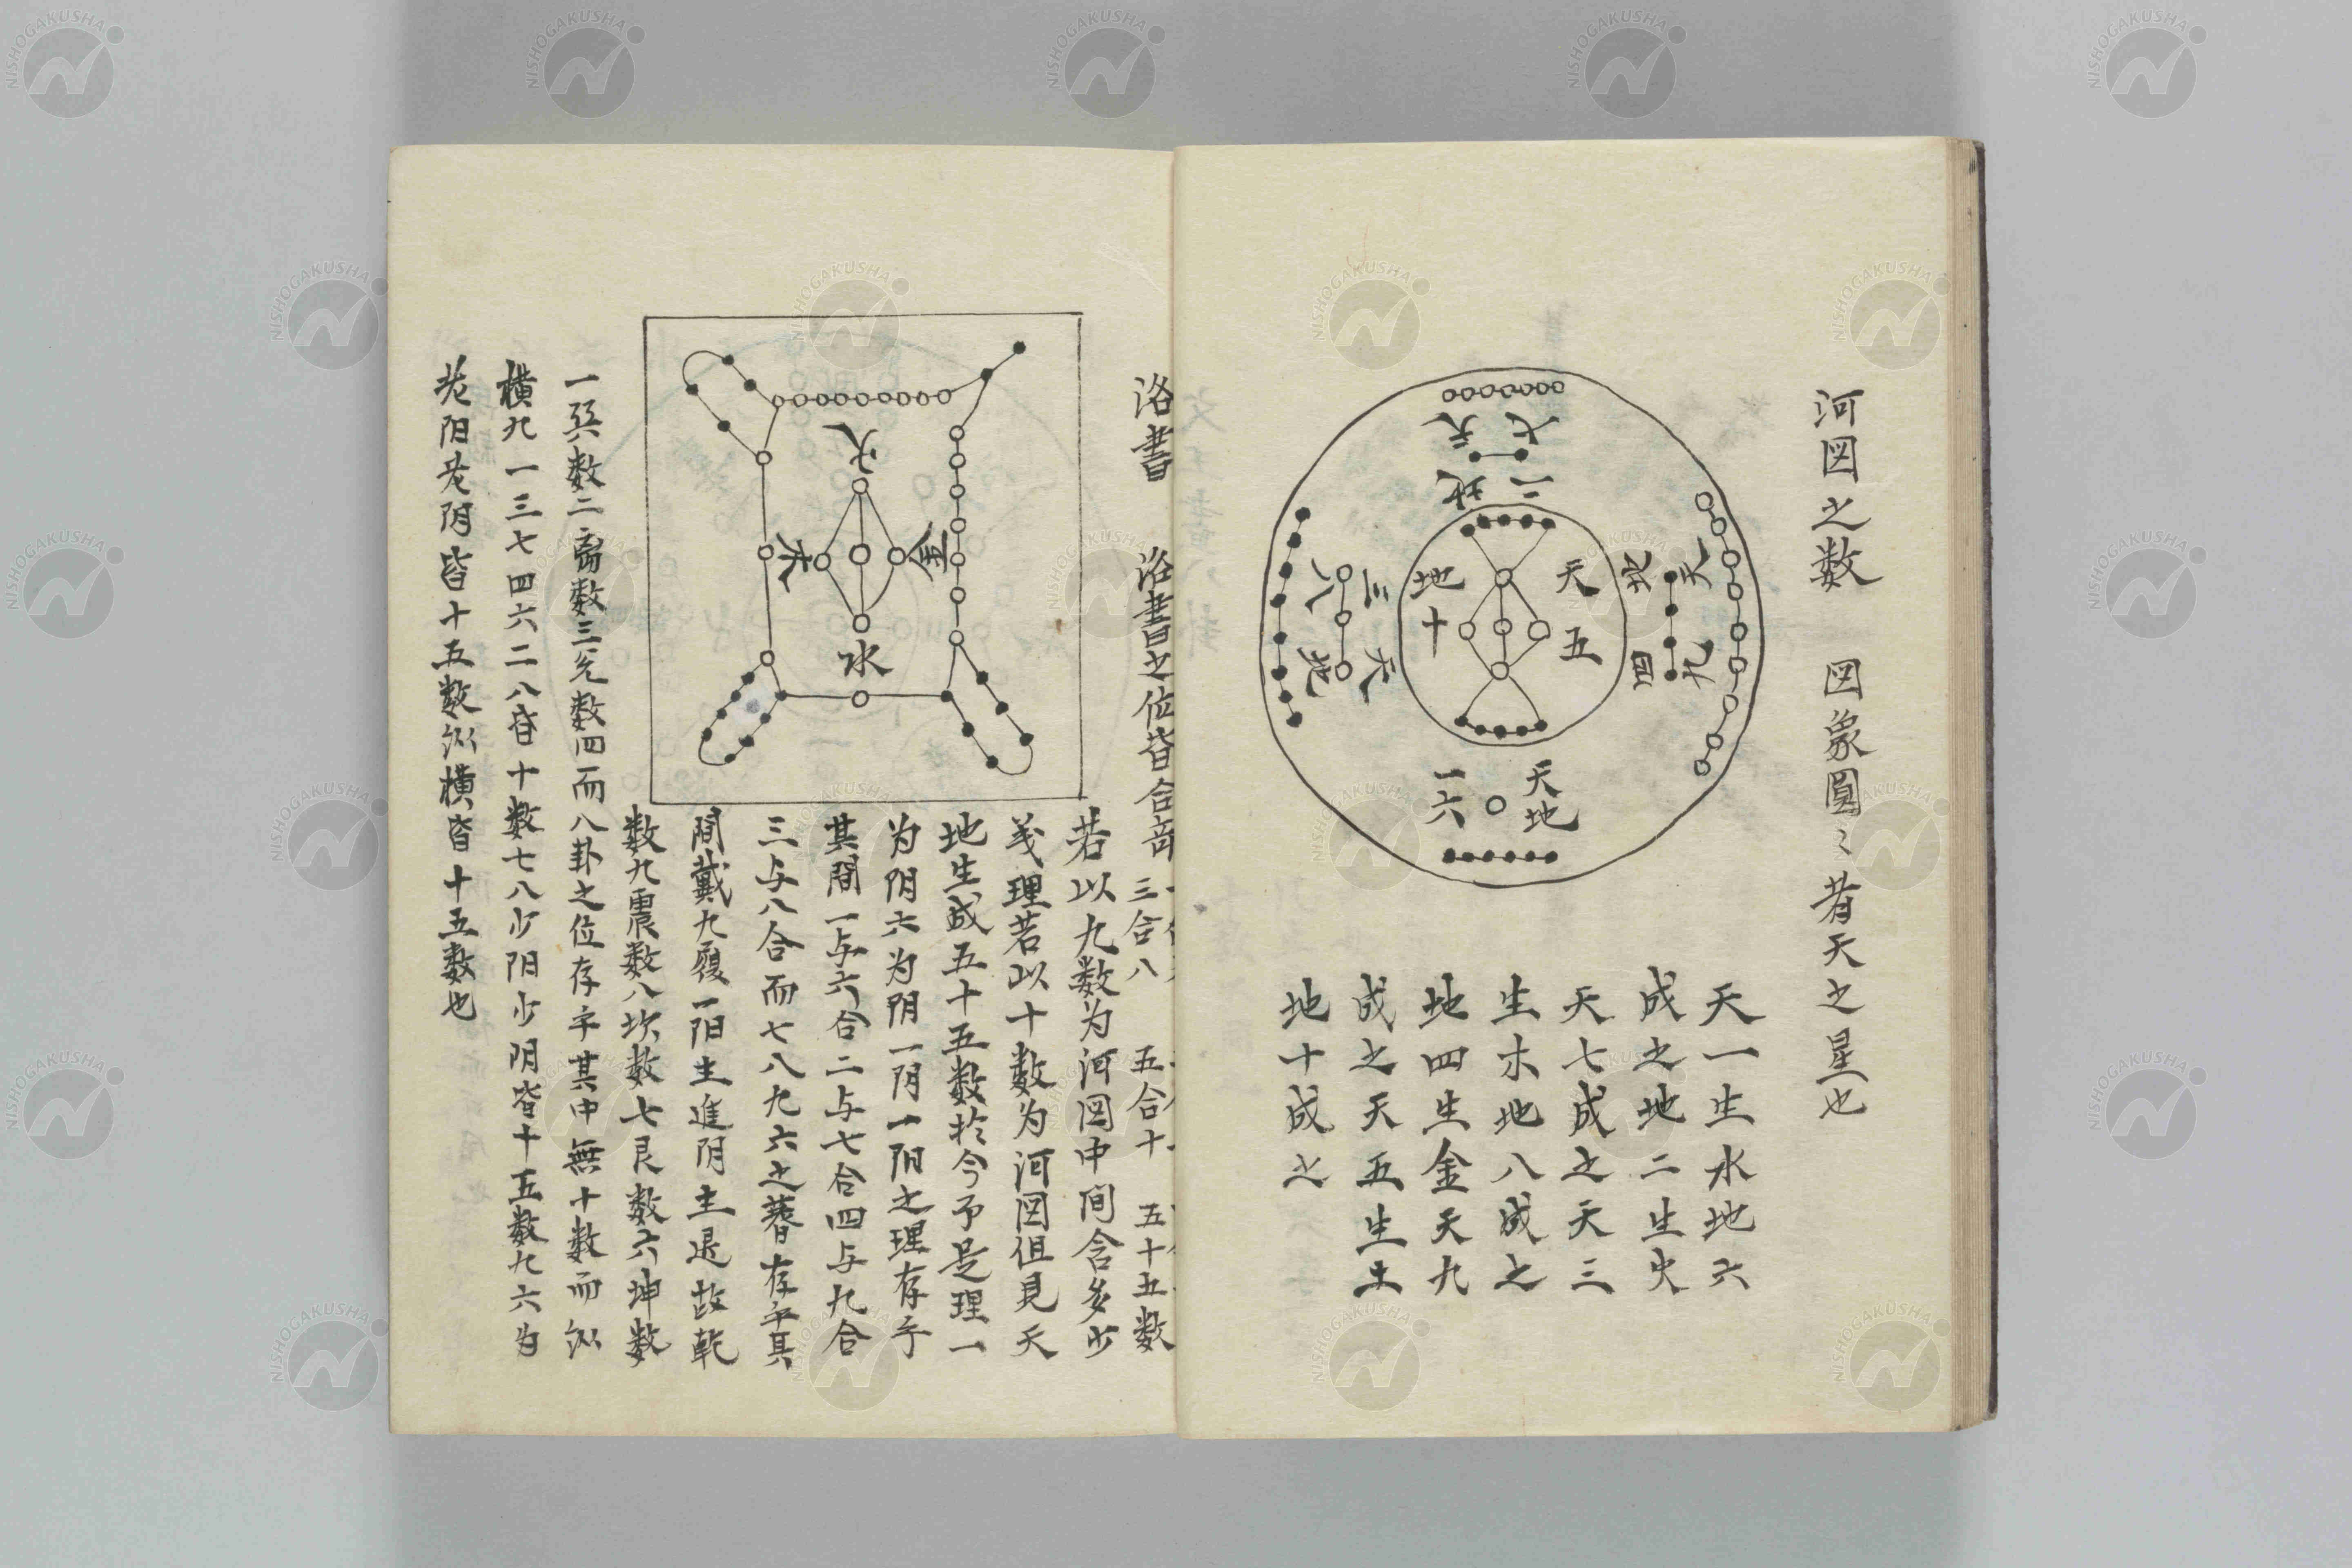 河図之数　図象圓〻者天之星也
七天
二地
天五
地十
天九
地四
三天
八地
天地
一六
天一生水地六
成之地二生火
天七成之天三
生木地八成之
地四生金天九
成之天五生土
地十成之
洛書　洛書之位皆合竒
三合八　五合十　五十五数
火
木
金
水
若以九数为河図中间含多少
義理若以十数为河図但見天
地生成五十五数於今予是理一
为阴六为阴一阴一阳之理存乎
其間一与六合二与七合四与九合
三与八合而七八九六之蓍存乎其
間戴九履一阳主進阴主退故乾
数九震数八坎数七艮数六坤数
一巽数二离数三兊数四而八卦之位存乎其中無十数而纵
横九一三七四六二八皆十数七八少阳少阴皆十五数九六为
老阳老阴皆十五数纵横皆十五数也
NISHOGAKUSHA